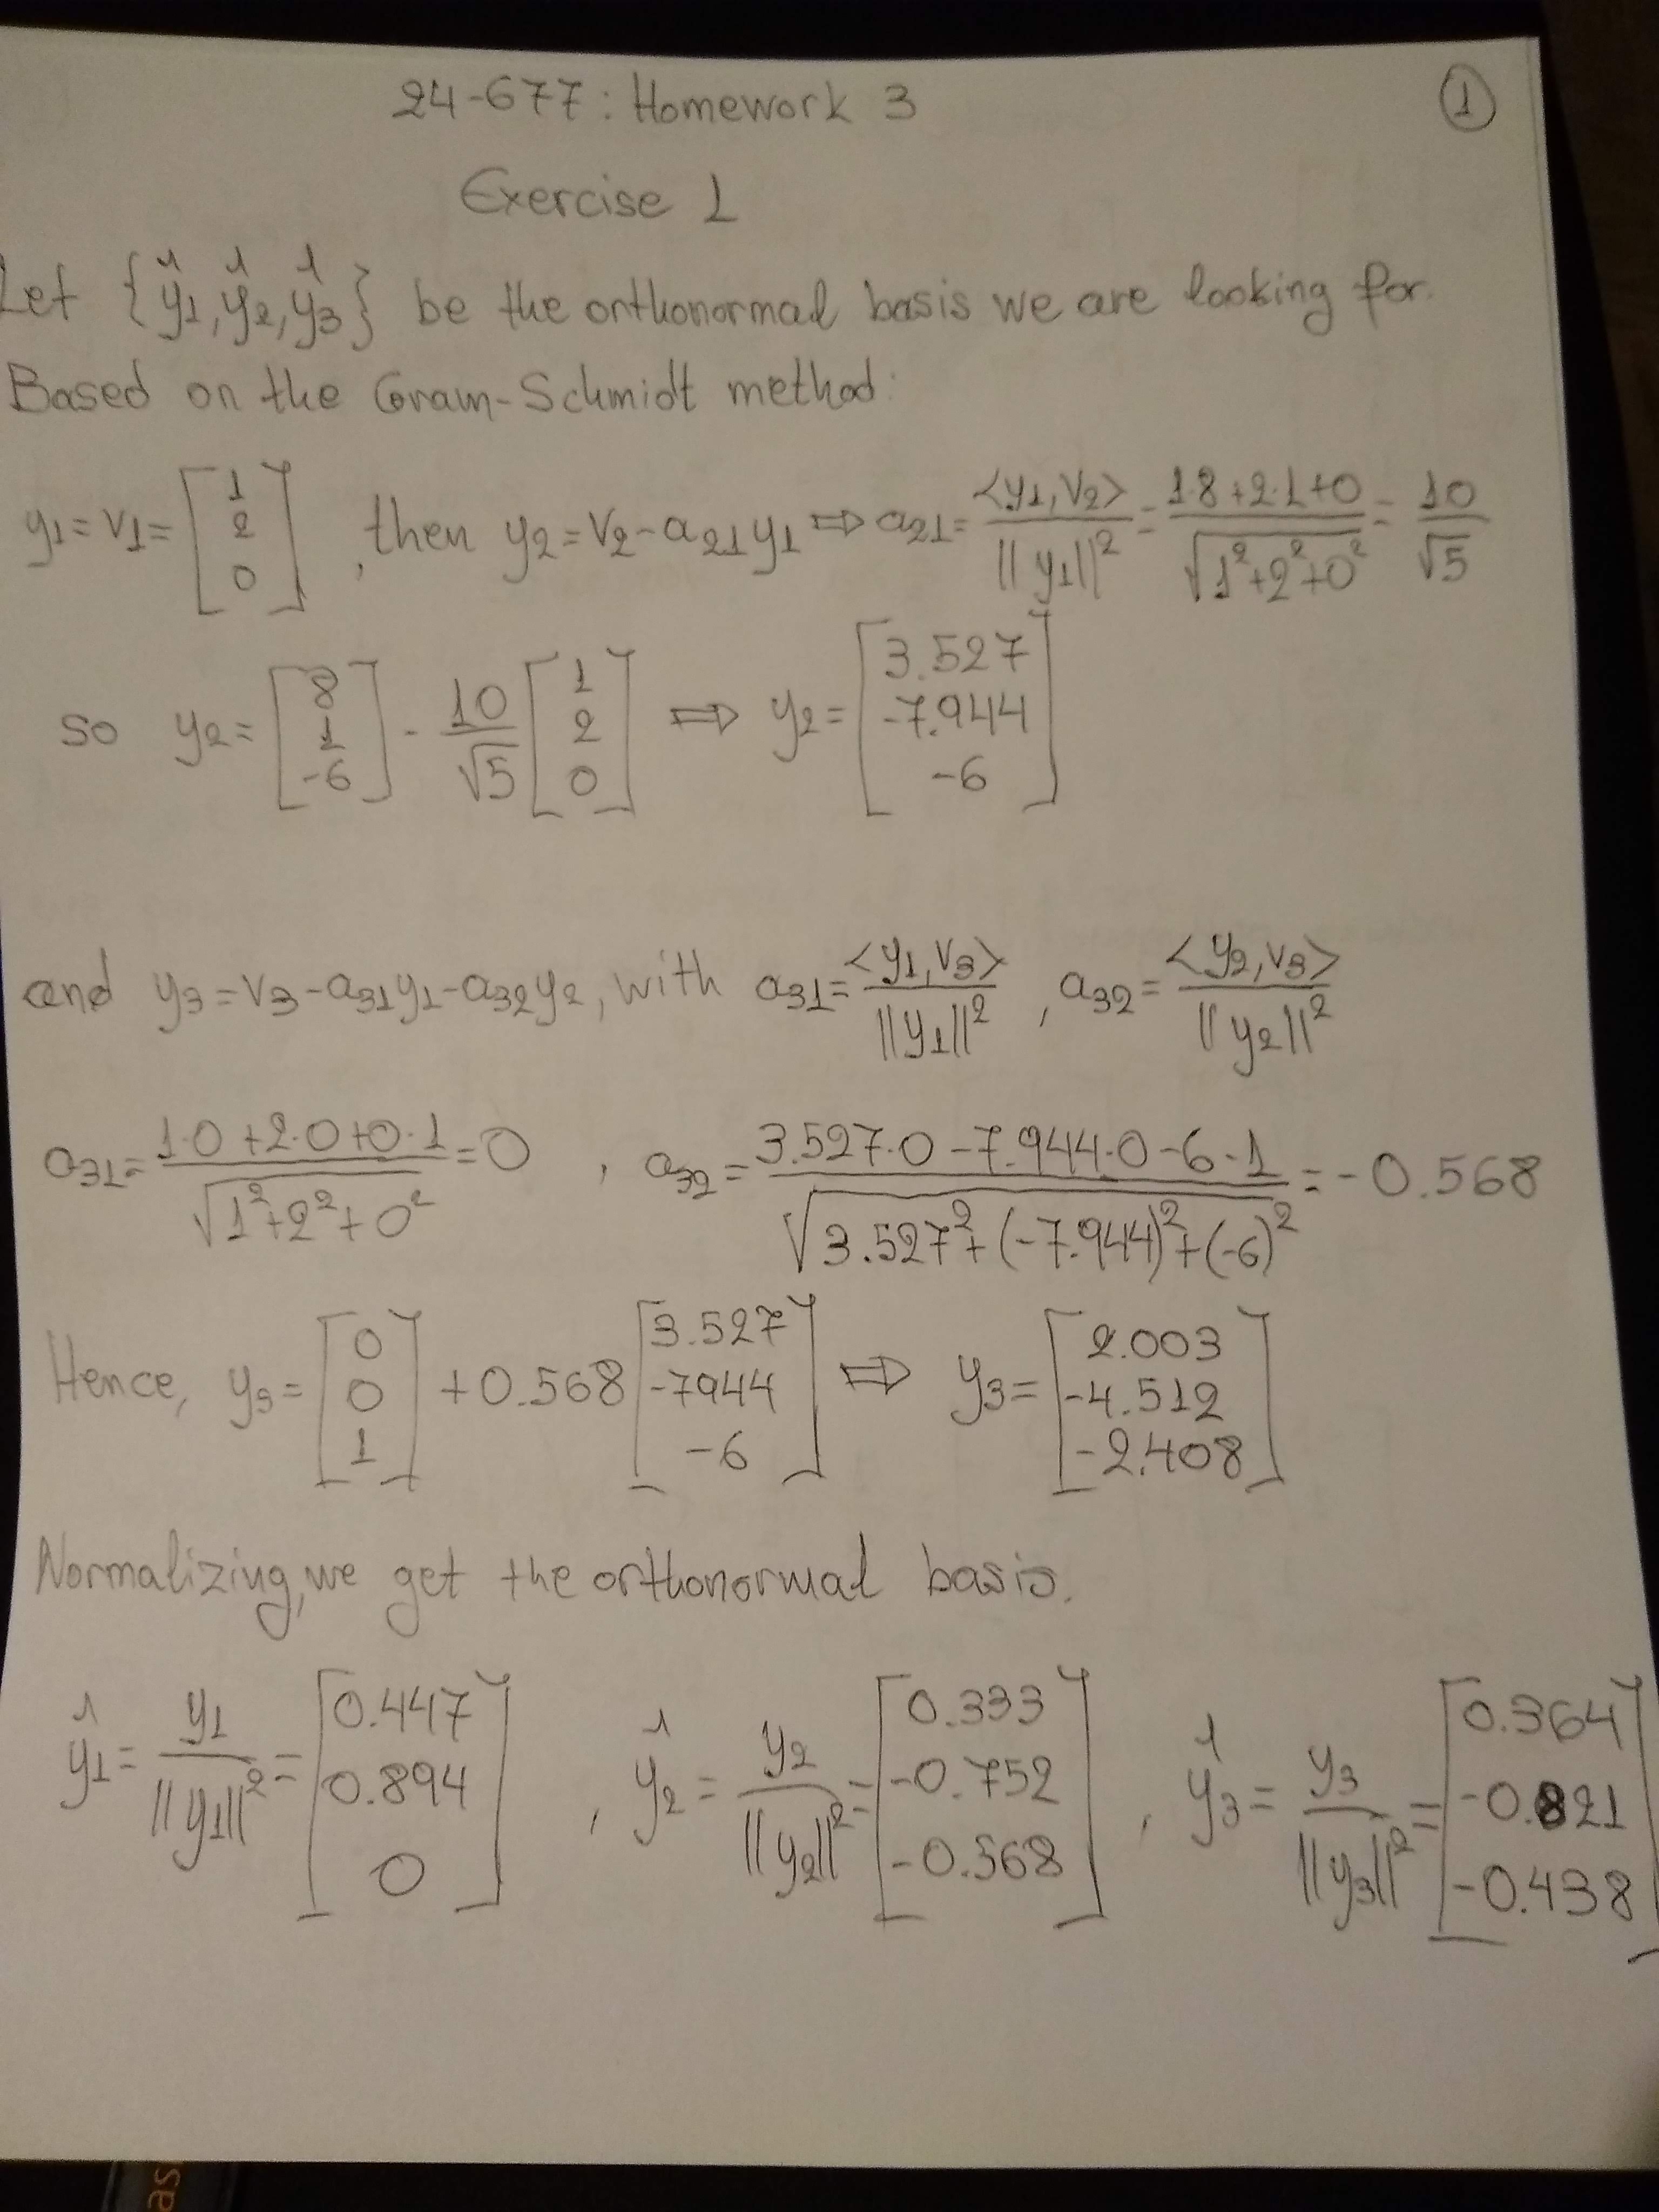 24-677: Homework 3
①
Exercise 1
Let {ŷ1, ŷ2, ŷ3} be the orthonormal basis we are looking for.
Based on the Gram-Schmidt method:
y1 = v1 = [1 2 0], then y2 = v2 - a21 y1 ⇒ a21 = <y1, v2> / ||y1||² = (1·8+2·1+0) / √(1²+2²+0²) = 10/√5
so y2 = [8 1 -6] - 10/√5 [1 2 0] ⇒ y2 = [3.527 -7.944 -6]
and y3 = v3 - a31 y1 - a32 y2, with a31 = <y1, v3> / ||y1||², a32 = <y2, v3> / ||y2||²
a31 = (1·0+2·0+0·1) / √(1²+2²+0²) = 0, a32 = (3.527·0 -7.944·0 -6·1) / √(3.527²+(-7.944)²+(-6)²) = -0.568
Hence, y3 = [0 0 1] + 0.568 [3.527 -7944 -6] ⇒ y3 = [2.003 -4.512 -2.408]
Normalizing, we get the orthonormal basis.
ŷ1 = y1 / ||y1||² = [0.447 0.894 0], ŷ2 = y2 / ||y2||² = [0.333 -0.752 -0.568], ŷ3 = y3 / ||y3||² = [0.364 -0.821 -0.438]
as